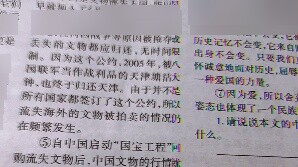 丢失的文物都应归还,无时间限
制。因为这个公约,2005年,被八
国联军当作战利品的天津塘沽大
钟,也终于归还天津。由于并不是
所有国家都签订了这个公约,所以
流失海外的文物被拍卖的情况仍
在频繁发生。
⑤自中国启动“国宝工程”
购流失文物后,中国文物的行情就
历史记忆不会
出身不会变。只要我们
怀诚意地面对历史,屈辱
一种爱国的力量。
⑦因为爱,所以会
姿态也体现了一个民族
1. 请说说本文的
什么。